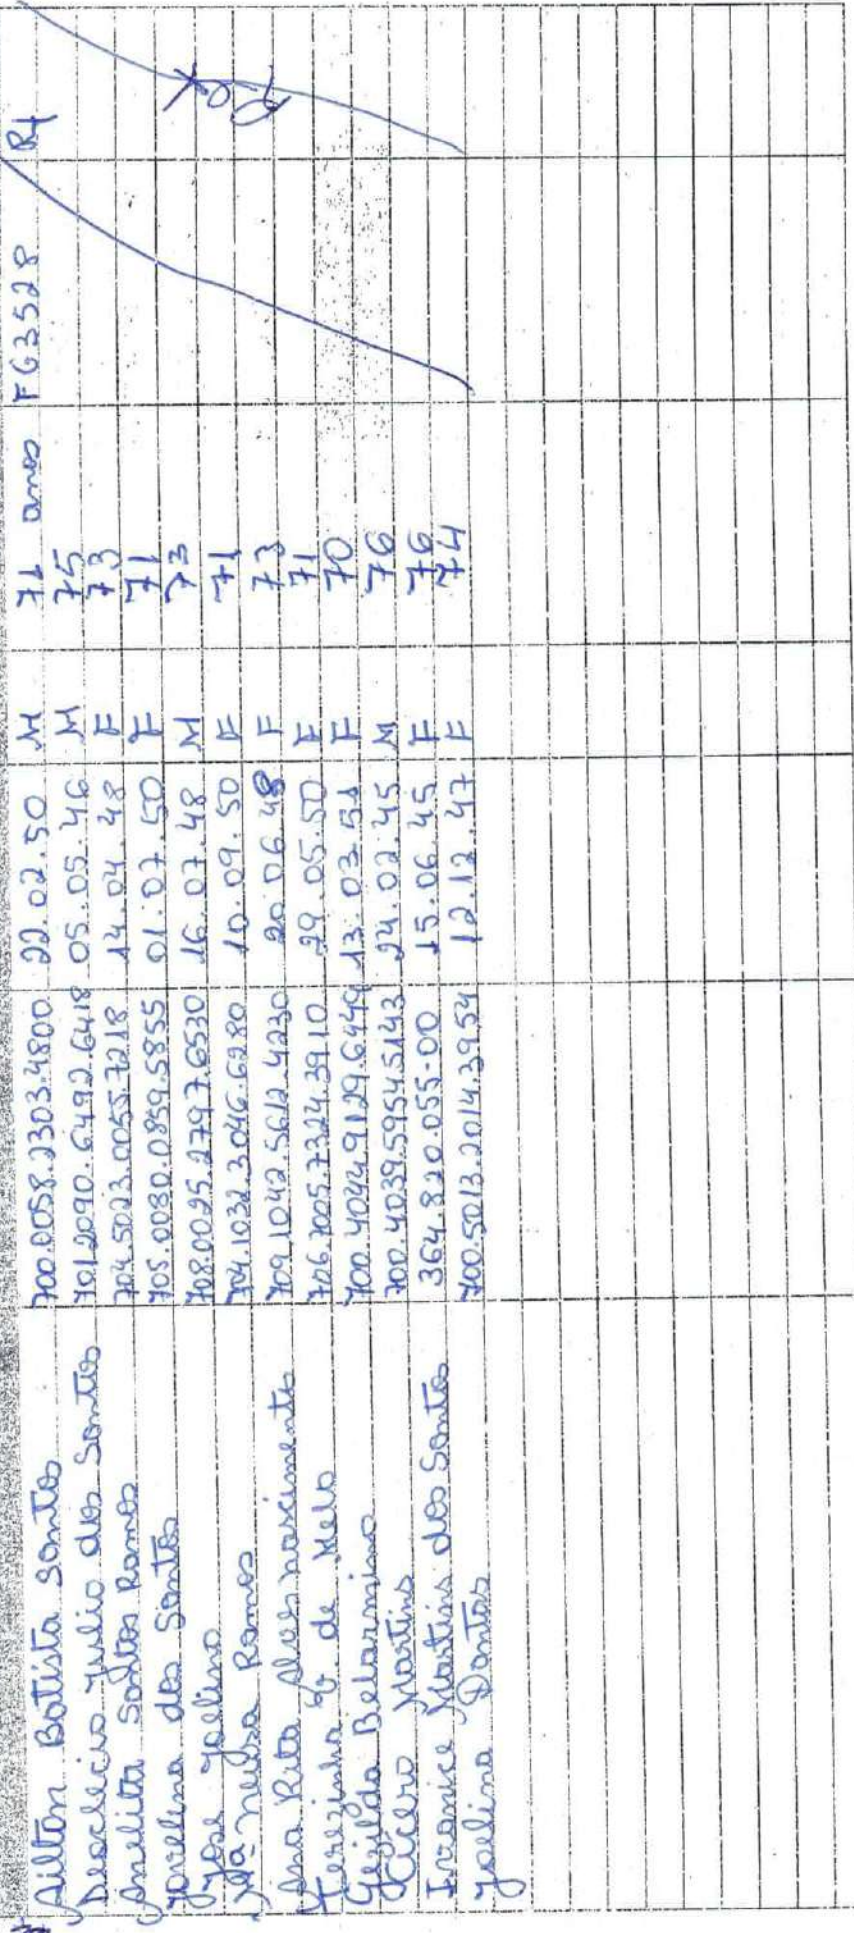 Ailton Batista Santos 700.0058.2303.4800 22.02.50 M 71 anos FG3528 R4
Deoclecio Julio dos Santos 701.2090.6492.6418 05.05.46 M 75
Anelita Santos Ramos 704.5023.0055.7218 14.04.48 F 73
Jovelina dos Santos 705.0080.0859.5855 01.07.50 F 71
José Joelino 708.0025.2797.6530 16.07.48 M 73
Mª Neusa Ramos 704.1032.3046.6280 10.09.50 F 71
Ana Rita Alves nascimento 709.1042.5612.4230 20.06.48 F 73
Terezinha de Melo 706.7005.7324.3910 29.05.50 F 71
Gezilda Belarmino 13.03.51 F 70
Cicero Martins 700.4039.5954.5143 24.02.45 M 76
Iranice Martins dos Santos 364.820.055-00 15.06.45 F 76
Joelina Dantas 700.5013.2014.3954 12.12.47 F 74